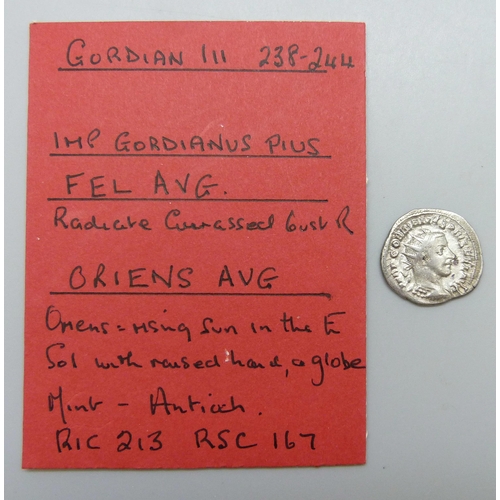 GORDIAN III 238-244
IMP GORDIANUS PIUS
FEL AVG.
Radiate Cuirassed bust R
ORIENS AVG
Oriens = rising Sun in the E
Sol with raised hand, a globe
Mint - Antioch.
RIC 213 RSC 167